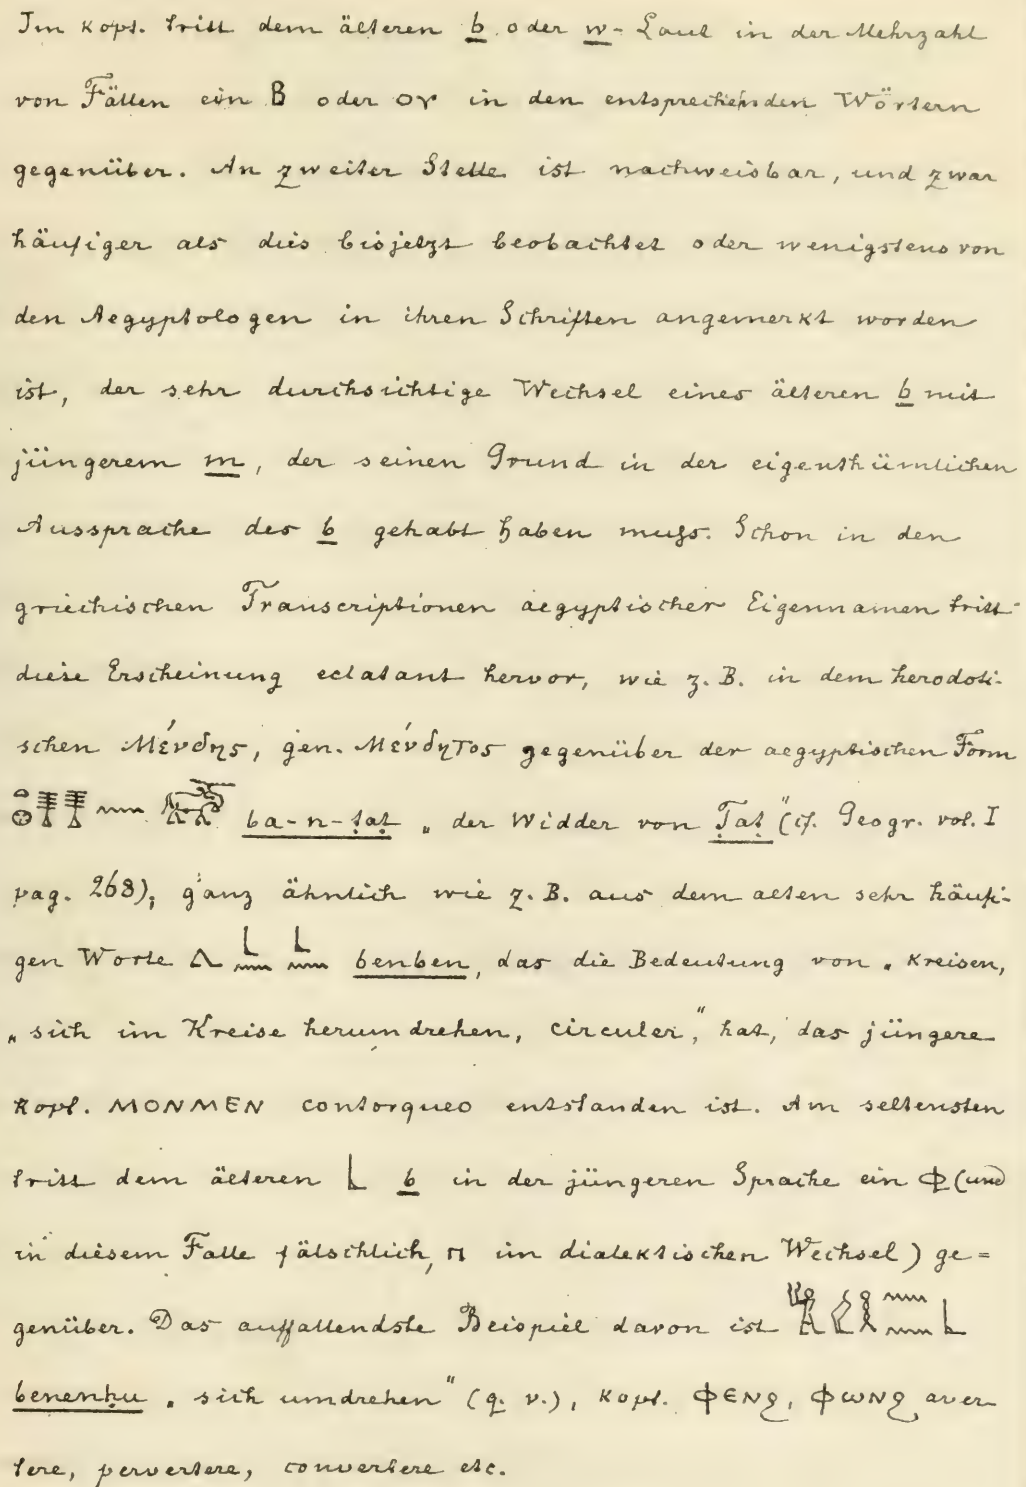 Im kopt. tritt dem älteren b oder w-Laut in der Mehrzahl
von Fällen ein Ⲃ oder ⲟⲩ in den entsprechenden Wörtern
gegenüber. An zweiter Stelle ist nachweisbar, und zwar
häufiger als dies bisjetzt beobachtet oder wenigstens von
den Aegyptologen in ihren Schriften angemerkt worden
ist, der sehr durchsichtige Wechsel eines älteren b mit
jüngerem m, der seinen Grund in der eigenthümlichen
Aussprache des b gehabt haben muſs. Schon in den
griechischen Transcriptionen aegyptischer Eigennamen tritt
diese Erscheinung eclatant hervor, wie z. B. in dem herodoti-
schen Μένδης, gen. Μένδητος gegenüber der aegyptischen Form
ba-n-ṭaṭ „der Widder von Ṭaṭ" (cf. Geogr. vol. I
pag. 268), ganz ähnlich wie z. B. aus dem alten sehr häufi-
gen Worte benben, das die Bedeutung von „kreisen,
„sich im Kreise herumdrehen, circuler," hat, das jüngere
kopt. ⲘⲞⲚⲘⲈⲚ contorqueo entstanden ist. Am seltensten
tritt dem älteren 𓃀 b in der jüngeren Sprache ein ⲫ (und
in diesem Falle fälschlich, ⲡ im dialektischen Wechsel) ge=
genüber. Das auffallendste Beispiel davon ist
benenḥu „sich umdrehen" (q. v.), kopt. ⲫⲉⲛϩ, ⲫⲱⲛϩ aver-
tere, pervertere, convertere etc.